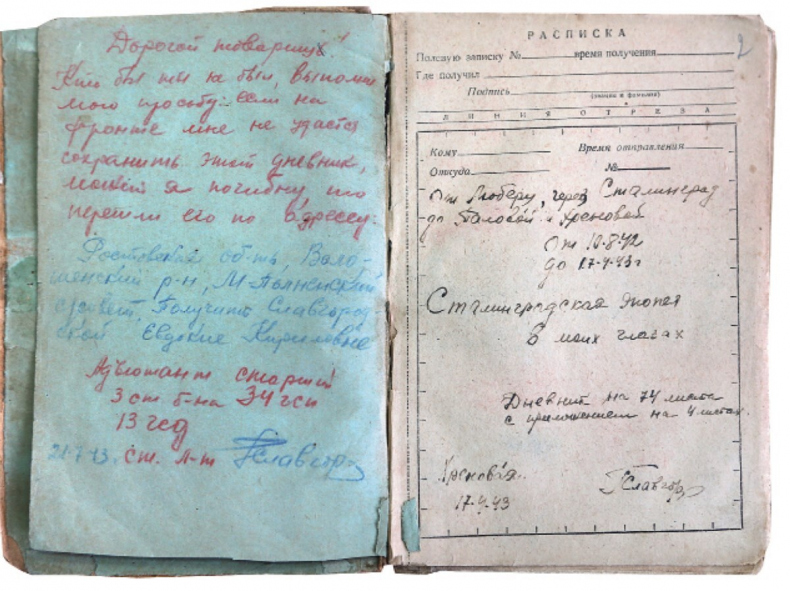 Дорогой товарищ!
Кто бы ты не был, выполни
мою просьбу: если на
фронте мне не удастся
сохранить этот дневник,
может я погибну, то
перешли его по адрессу:
Ростовская об-ть, Воло-
шенский р-н, М-Полненский
с/совет, Получить Славгород
ской Евдокие Кириловне
Адъютант старший
3 ст. б-на 34 гсп
13 гсд
21.7.43. ст. л-т Славгор
РАСПИСКА
Полевую записку № время получения
Где получил
Подпись
(звание и фамилия)
ЛИНИЯ ОТРЕЗА
Кому Время отправления
Откуда №
От Люберц, через Сталинград
до Таловой и Хреновой
От 10.8.42
до 17.4.43 г
Сталинградская эпопея
в моих глазах
Дневник на 74 листа
с приложением на 4 листах.
Хреновая.
17.4.43 Славгор
2